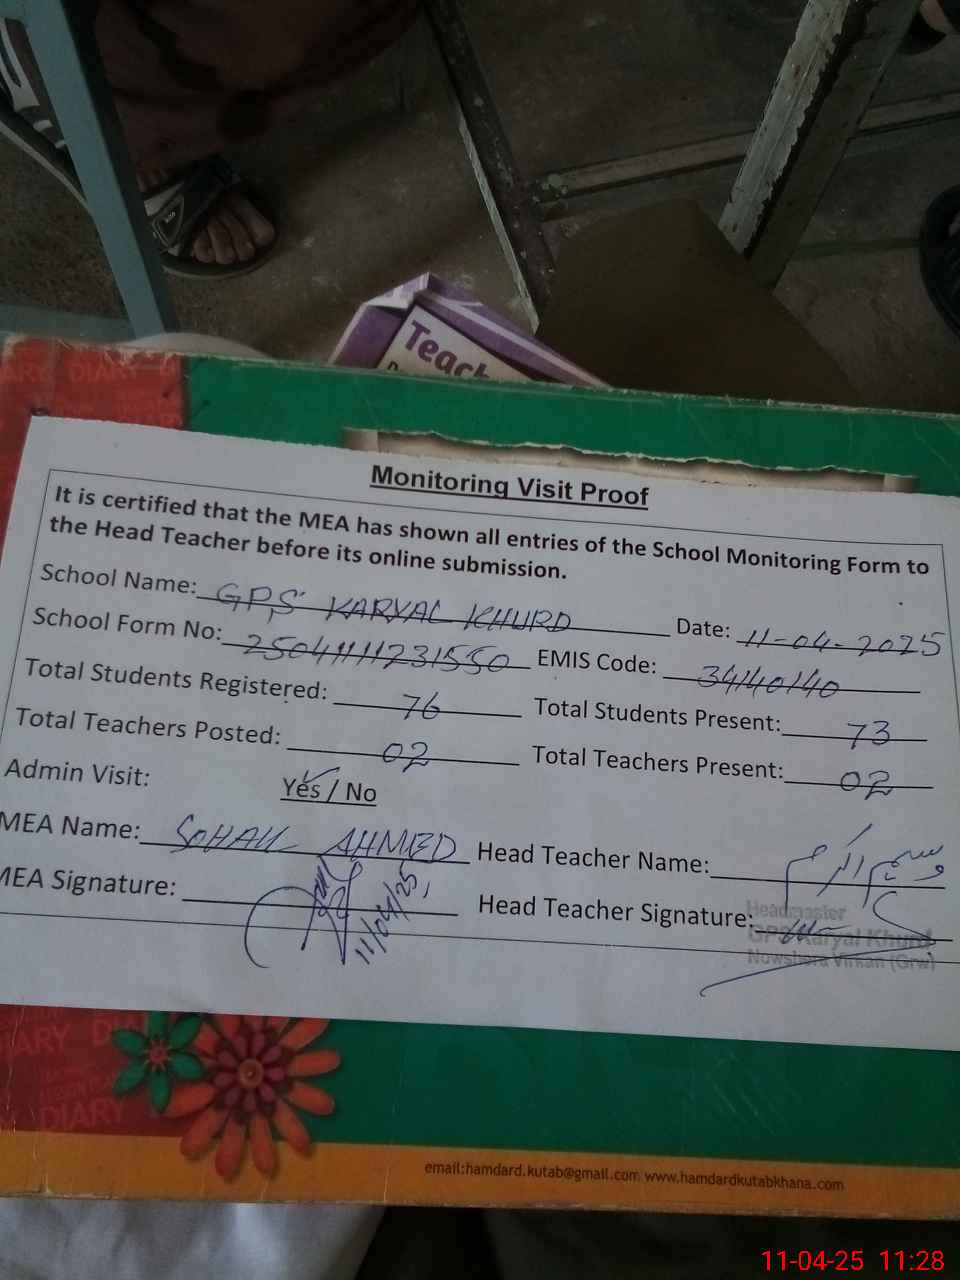 Teach
DIARY
Monitoring Visit Proof
It is certified that the MEA has shown all entries of the School Monitoring Form to
the Head Teacher before its online submission.
School Name: GPS KARYAL KHURD Date: 11-04-2025
School Form No: EMIS Code: 34140140
Total Students Registered: 76 Total Students Present: 73
Total Teachers Posted: 02 Total Teachers Present: 02
Admin Visit: Yes / No
MEA Name: SOHAIL AHMED Head Teacher Name:
MEA Signature: 11/04/25 Head Teacher Signature:
Headmaster
GPS Karyal Khurd
Nowshera Virkan (Grw)
DIARY
email:hamdard.kutab@gmail.com www.hamdardkutabkhana.com
11-04-25 11:28